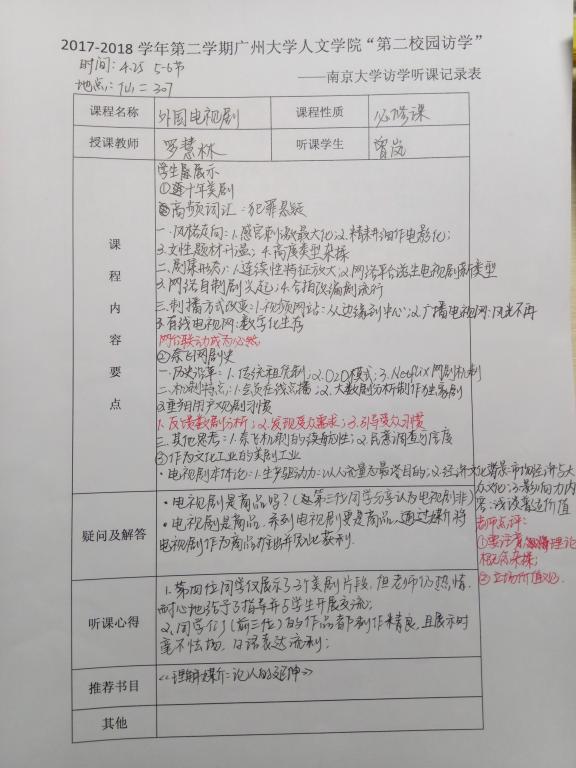 2017-2018 学年第二学期广州大学人文学院“第二校园访学”
时间：4.25 5-6节
——南京大学访学听课记录表
地点：仙二 307
课程名称 外国电视剧 课程性质 必修课
授课教师 罗慧林 听课学生 曾岚
课程内容要点
学生展示
①近十年美剧
高频词汇：犯罪悬疑
一、风格反向：1.感官刺激最大化；2.精耕细作电影化；
3.女性题材升温；4.高度类型杂糅
二、剧集形态：1.连续性特征放大；2.网络平台派生电视剧新类型
3.网络自制剧兴起；4.合拍改编剧流行
三、制播方式改变：1.视频网站：从边缘到中心；2.广播电视网：风光不再
3.有线电视网：数字化生存
网台联动成为必然
②奈飞网剧史
一、历史沿革：1.传统租赁制；2.O2O模式；3.Netflix网剧机制
二、机制特点：1.会员在线点播；2.大数据分析制作独家剧
3.重塑用户观剧习惯
1.反馈数据分析；2.发现受众需求；3.引导受众习惯
三、其他思考：1.奈飞机制的误航性；2.民意调查的信度
③作为文化工业的美剧工业
·电视剧本体论：1.生产驱动力：以人流量为最终目的；2.经济文化背景：市场经济与大
众文化；3.影响力内
容：浅设普适价值
疑问及解答
·电视剧是商品吗？（第三位同学分享认为电视剧非）
·电视剧是商品，系列电视剧更是商品，通过媒介将
电视剧作为商品推出并以此获利.
老师点评：
①要注意理论
相应杂糅；
②立场价值观.
听课心得
1.第四位同学仅展示了3个美剧片段，但老师仍热情
耐心地给予了指导并与学生开展交流；
2.同学们（前三位）的作品都制作精良，且展示时
毫不怯场，口语表达流利；
推荐书目 《理解媒介：论人的延伸》
其他